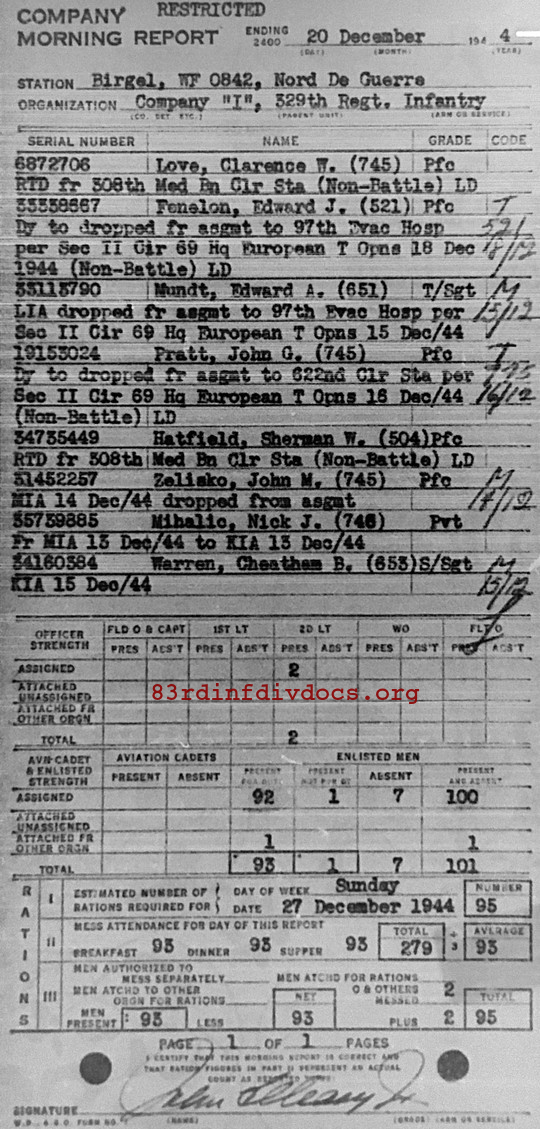 COMPANY RESTRICTED
MORNING REPORT ENDING 2400 20 December 194 4
(DAY) (MONTH) (YEAR)
STATION Birgel, WF 0842, Nord De Guerre
ORGANIZATION Company "I", 329th Regt. Infantry
(CO. DET. ETC.) (PARENT UNIT) (ARM OR SERVICE)
SERIAL NUMBER NAME GRADE CODE
6872706 Love, Clarence W. (745) Pfc
RTD fr 308th Med Bn Clr Sta (Non-Battle) LD
Fenelon, Edward J. (521) Pfc T
Dy to dropped fr asgmt to 97th Evac Hosp 521
per Sec II Cir 69 Hq European T Opns 18 Dec 18/12
1944 (Non-Battle) LD
33113790 Mundt, Edward A. (651) T/Sgt M
LIA dropped fr asgmt to 97th Evac Hosp per 15/12
Sec II Cir 69 Hq European T Opns 15 Dec/44
19153024 Pratt, John G. (745) Pfc T
Dy to dropped fr asgmt to 622nd Clr Sta per
Sec II Cir 69 Hq European T Opns 16 Dec/44 16/12
(Non-Battle) LD
34735449 Hatfield, Sherman W. (504)Pfc
RTD fr 308th Med Bn Clr Sta (Non-Battle) LD
31452257 Zelisko, John M. (745) Pfc M
MIA 14 Dec/44 dropped from asgmt 14/12
35739885 Mihalic, Nick J. (746) Pvt
Fr MIA 13 Dec/44 to KIA 13 Dec/44
34160384 Warren, Cheatham B. (653)S/Sgt M
KIA 15 Dec/44 15/12
OFFICER STRENGTH FLD O & CAPT 1ST LT 2D LT WO FLT O
PRES ABS'T PRES ABS'T PRES ABS'T PRES ABS'T PRES ABS'T
ASSIGNED 2
ATTACHED UNASSIGNED
ATTACHED FR OTHER ORGN
83rdinfdivdocs.org
TOTAL 2
AVN CADET & ENLISTED STRENGTH AVIATION CADETS ENLISTED MEN
PRESENT ABSENT PRESENT FOR DUTY PRESENT NOT FOR DY ABSENT PRESENT AND ABSENT
ASSIGNED 92 1 7 100
ATTACHED UNASSIGNED
ATTACHED FR OTHER ORGN 1 1
TOTAL 93 1 7 101
RATIONS
I ESTIMATED NUMBER OF RATIONS REQUIRED FOR DAY OF WEEK Sunday NUMBER
DATE 27 December 1944 95
II MESS ATTENDANCE FOR DAY OF THIS REPORT TOTAL ÷ 3 AVERAGE
BREAKFAST 93 DINNER 93 SUPPER 93 279 93
III MEN AUTHORIZED TO MESS SEPARATELY MEN ATCHD FOR RATIONS
MEN ATCHD TO OTHER ORGN FOR RATIONS O & OTHERS MESSED 2
NET TOTAL
MEN PRESENT 93 LESS 93 PLUS 2 95
PAGE 1 OF 1 PAGES
I CERTIFY THAT THIS MORNING REPORT IS CORRECT AND
THAT RATION FIGURES IN PART II REPRESENT AN ACTUAL
COUNT AS REPORTED
SIGNATURE
W.D., A.G.O. FORM NO. 1 (NAME) (GRADE) (ARM OR SERVICE)